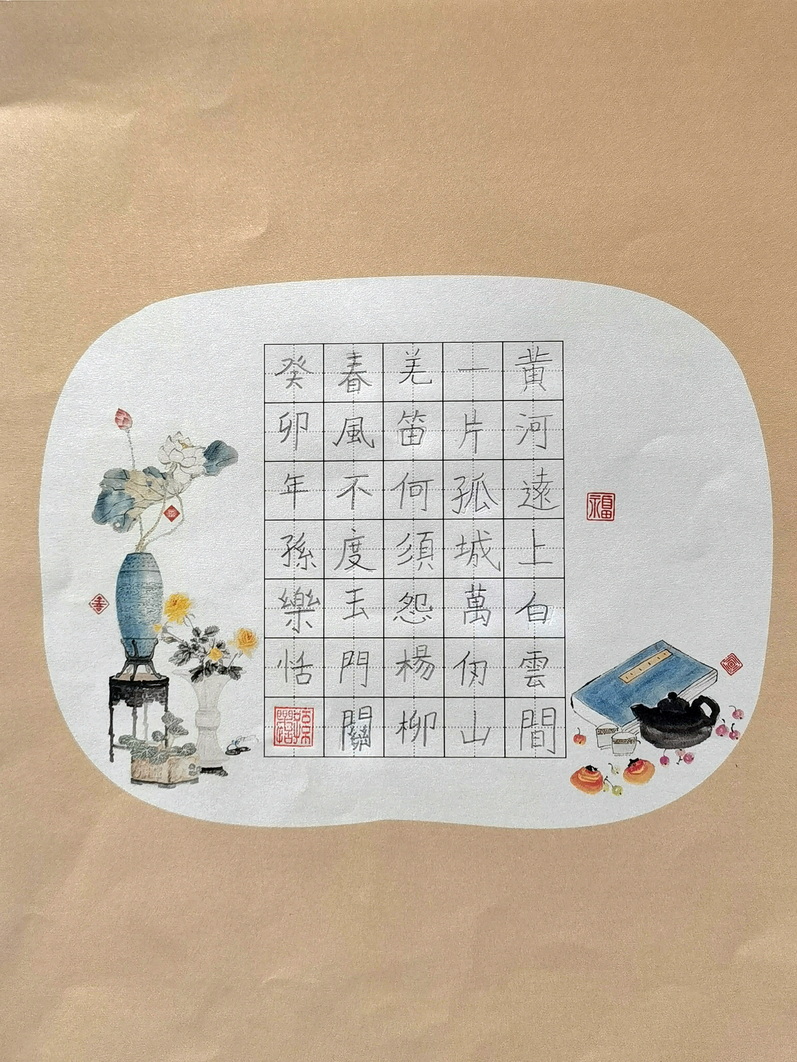 黃河遠上白雲間
一片孤城萬仞山
羌笛何須怨楊柳
春風不度玉門關
癸卯年孫樂恬
福